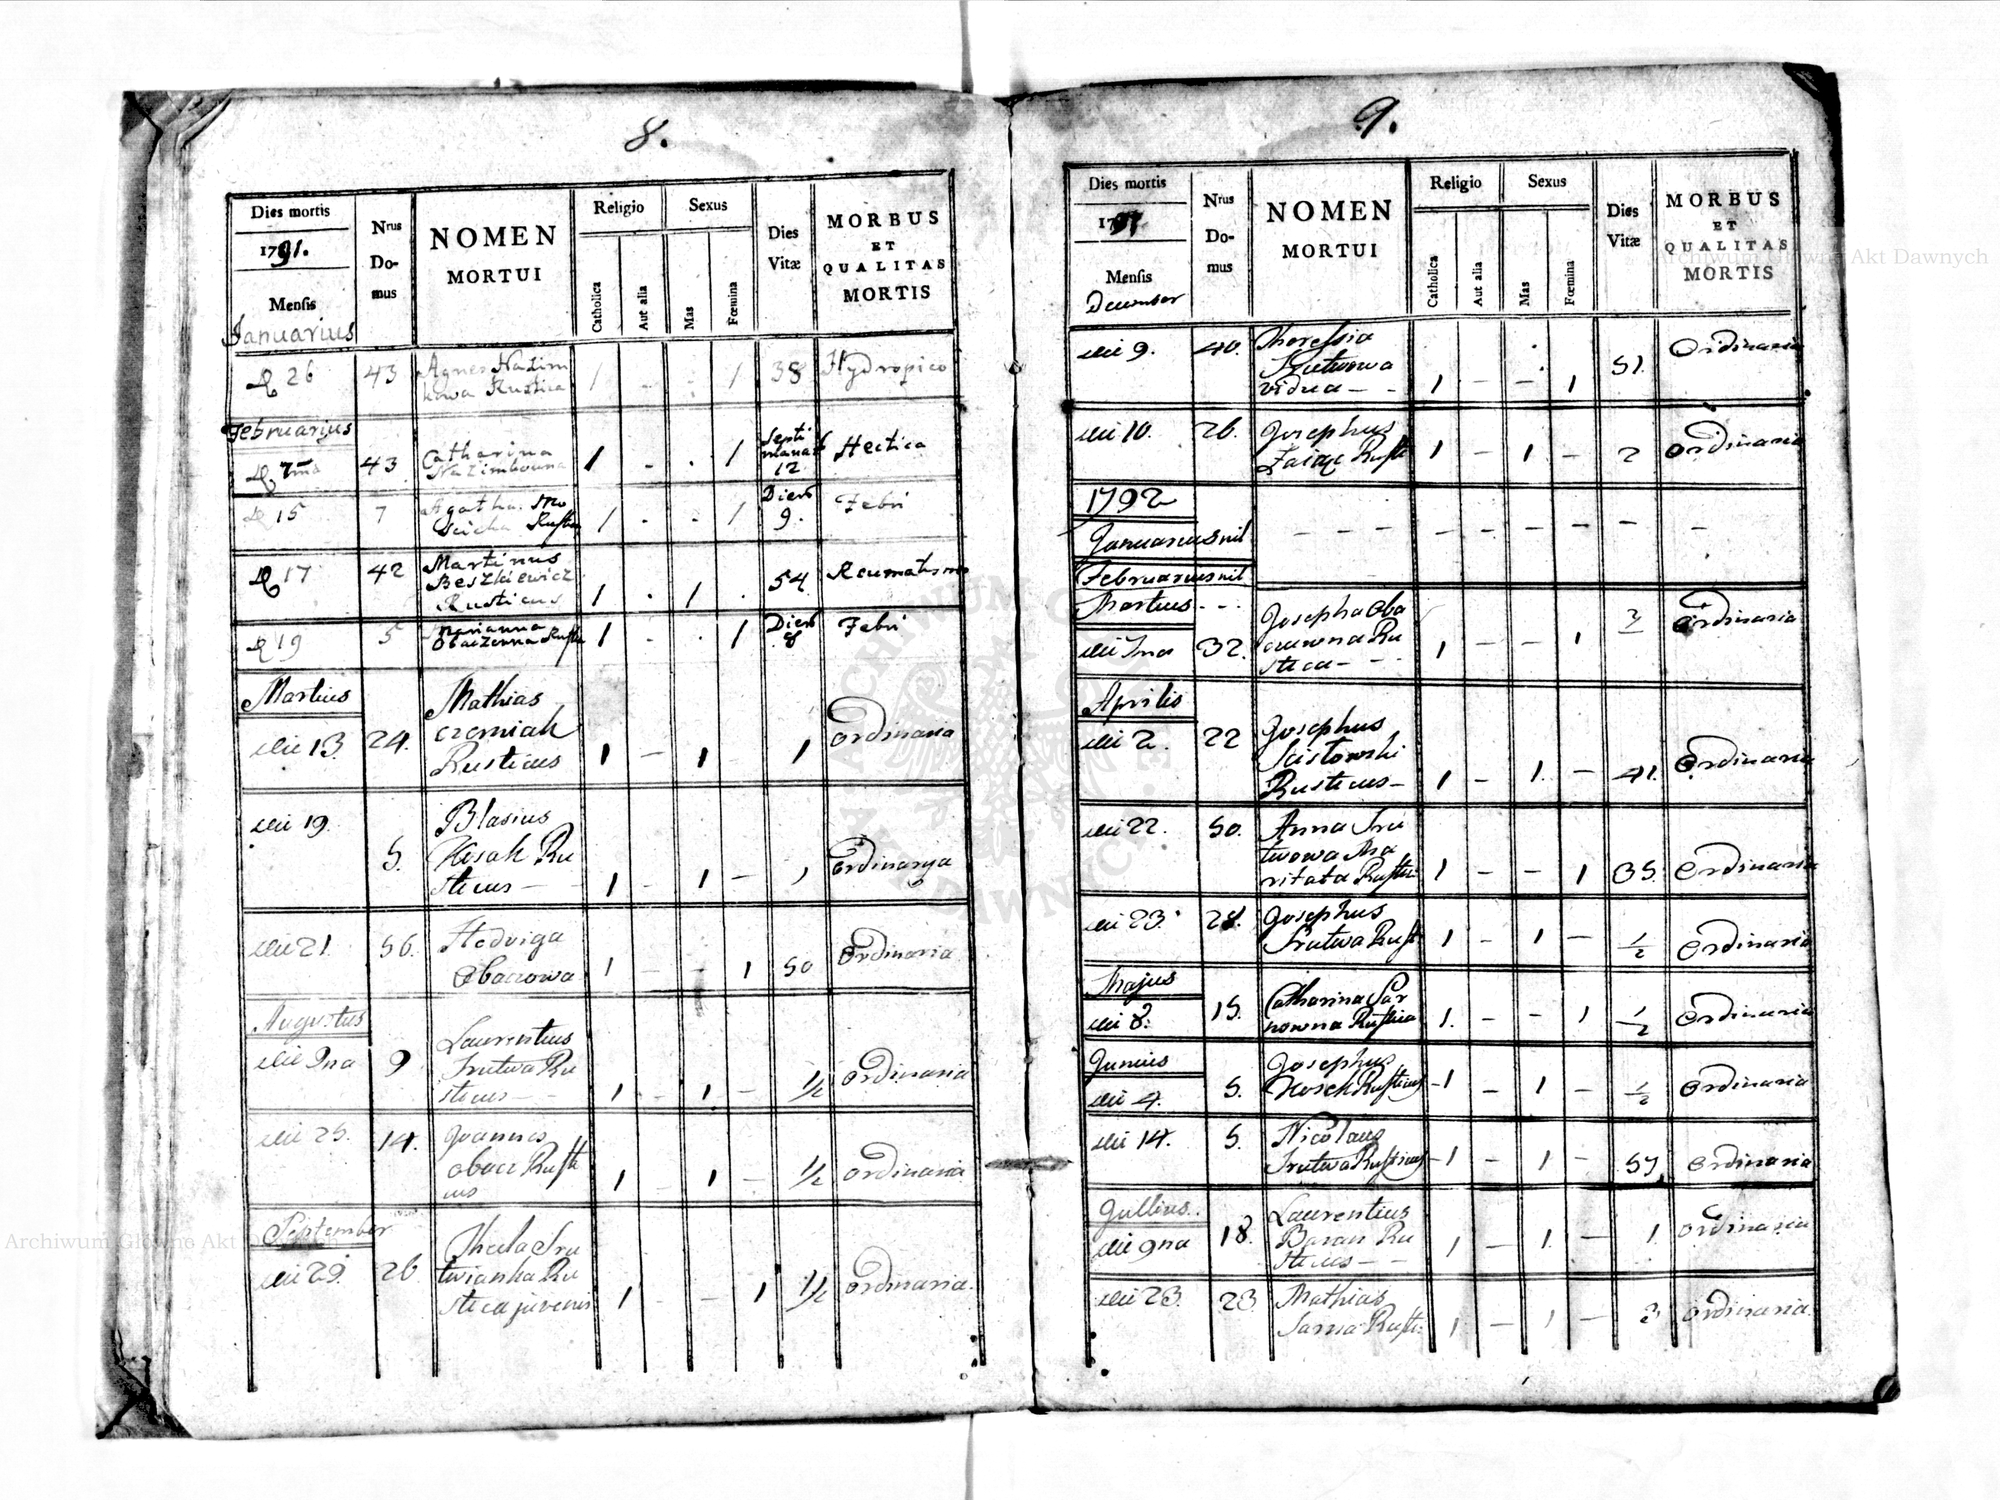 8.
Dies mortis
1791.
Mensis
Januarius
Nrus
Do-
mus
NOMEN
MORTUI
Religio
Catholica
Aut alia
Sexus
Mas
Fœmina
Dies
Vitæ
MORBUS
ET
QUALITAS
MORTIS
26 43 Agnes Nazim
kowa Rustica 1 - - 1 38 Hydropico
Februarius
7ma 43 Catharina
Nazimkowna 1 - - 1 Septi
manar
12 Hectica
15 7 Agatha
Rustica 1 - - 1 Dierum
9. Febri
17 42 Martinus
Beszkiewicz
Rusticus 1 - 1 - 54 Reumatismo
19 5 Marianna
1 - - 1 Dierum
8 Febri
Martius
die 13 24. Mathias
czerniak
Rusticus 1 - 1 1 ordinaria
die 19. 5. Blasius
Kosak Ru
sticus - 1 - 1 - 1 ordinarya
die 21. 56. Hedviga
Obacrowa 1 - - 1 50 ordinaria
Augustus
die 9na 9 Laurentius
Srutwa Ru
sticus - 1 - 1 - 1/2 ordinaria
die 25. 14. Joannes
obacz Rusti
cus 1 - 1 - 1/2 ordinaria
September
die 29. 26 Thecla Sru
twianka Ru
stica juvenis 1 - - 1 1/2 ordinaria.
9.
Dies mortis
1791
Mensis
December
Nrus
Do-
mus
NOMEN
MORTUI
Religio
Catholica
Aut alia
Sexus
Mas
Fœmina
Dies
Vitæ
MORBUS
ET
QUALITAS
MORTIS
die 9. 40. Theressia
Srutwowa
vidua - - 1 - - 1 51. Ordinaria
die 10. 26. Josephus
Zaiąc Rusti 1 - 1 - 2 Ordinaria
1792
Januarius nil
Februarius nil
Martius - -
die 7ma 32. Josepha Oba
Ru
stica - - 1 - - 1 Ordinaria
Aprilis
die 2. 22 Josephus
Scistowski
Rusticus - 1 - 1. - 41. Ordinaria
die 22. 50. Anna Sru
twowa Ma
ritata Rusti: 1 - - 1 35. Ordinaria
die 23. 28. Josephus
Srutwa Rusti 1 - 1 - 1/2 Ordinaria
Majus
die 8. 15. Catharina Sar
nowna Rustica 1. - - 1 1/2 Ordinaria
Junius
die 4. 5. Josephus
Kosek Rusticus - 1 - 1 - 1/2 Ordinaria
die 14. 5. Nicolaus
Srutwa Rusticus - 1 - 1 - 57. Ordinaria
Jullius.
die 9na 18. Laurentius
Baran Ru
sticus - - 1 - 1 - 1. Ordinaria
die 23. 23. Mathias
Sarna Rusti: 1 - 1 - 3 Ordinaria.
Archiwum Główne Akt Dawnych
Archiwum Główne Akt Dawnych